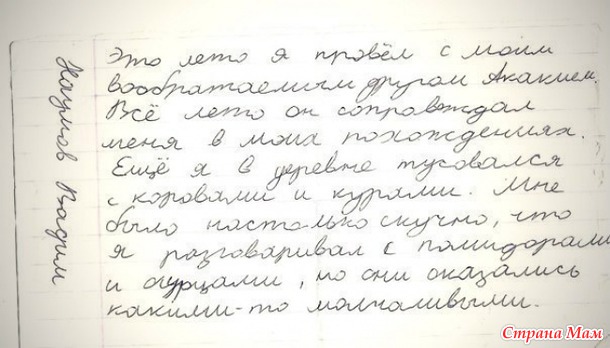 Наумов Вадим
Это лето я провёл с моим
воображаемым другом Акакием.
Всё лето он сопровождал
меня в моих похождениях.
Ещё я в деревне тусовался
с коровами и курями. Мне
было настолько скучно, что
я разговаривал с помидорами
и огурцами, но они оказались
какими-то молчаливыми.
Страна Мам